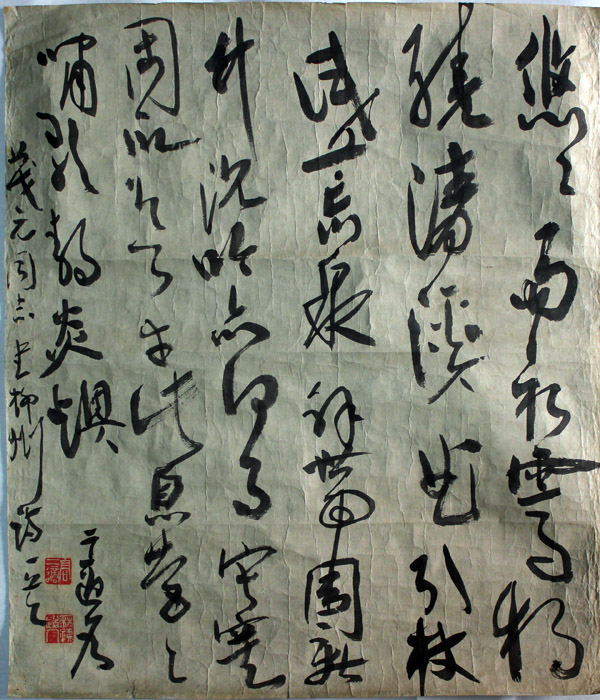 悠〻雨初霽獨
繞清溪曲引杖
試荒泉解帶圍新
竹沉吟亦何事寂寞
固所欲幸此息營〻
嘯歌靜炎燠
茂元同志書柳州詩一首
二適